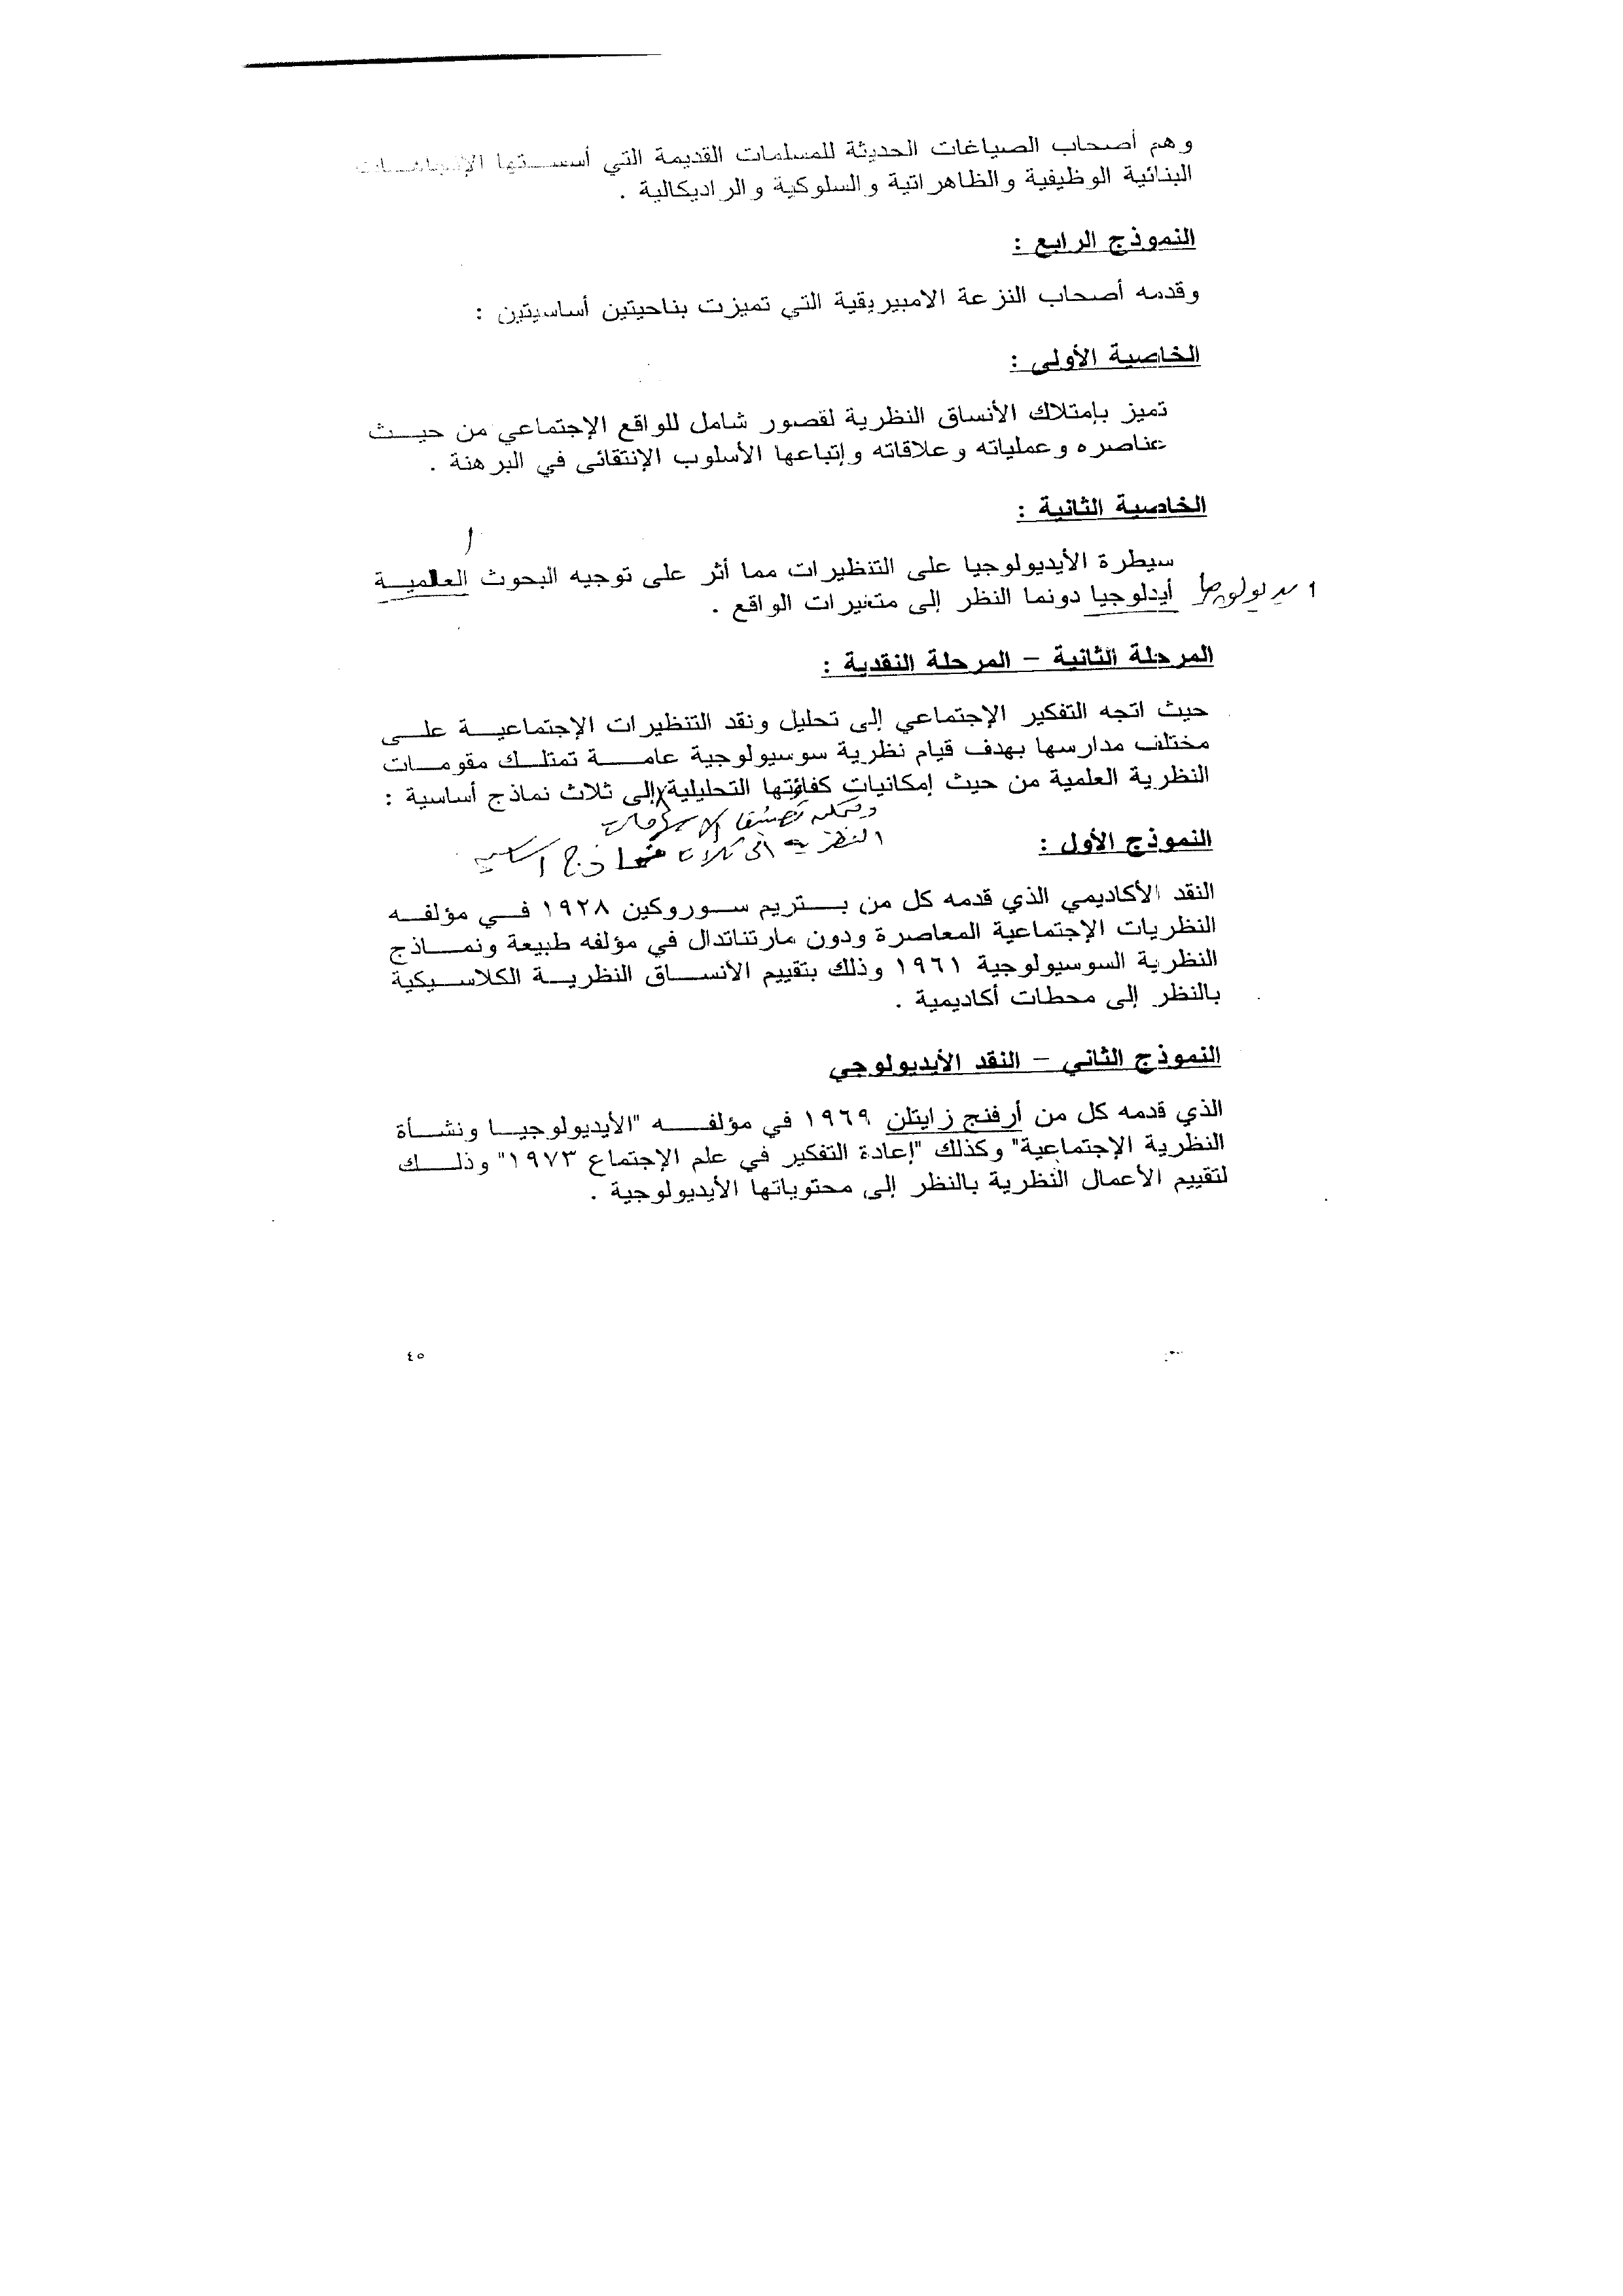 وهم أصحاب الصياغات الحديثة للمسلمات القديمة التي أسستها الإتجاهات
البنائية الوظيفية والظاهراتية والسلوكية والراديكالية .
النموذج الرابع :
وقدمه أصحاب النزعة الامبيريقية التي تميزت بناحيتين أساسيتين :
الخاصية الأولى :
تميز بإمتلاك الأنساق النظرية لقصور شامل للواقع الإجتماعي من حيث
عناصره وعملياته وعلاقاته وإتباعها الأسلوب الإنتقائى في البرهنة .
الخاصية الثانية :
سيطرة الأيديولوجيا على التنظيرات مما أثر على توجيه البحوث العلمية
أيدلوجيا دونما النظر إلى متغيرات الواقع .
ايديولوجيا
المرحلة الثانية – المرحلة النقدية :
حيث اتجه التفكير الإجتماعي إلى تحليل ونقد التنظيرات الإجتماعية على
مختلف مدارسها بهدف قيام نظرية سوسيولوجية عامة تمتلك مقومات
النظرية العلمية من حيث إمكانيات كفاؤتها التحليلية إلى ثلاث نماذج أساسية :
ويمكن تصنيف
النظرية الى ثلاث نماذج اساسية
النموذج الأول :
النقد الأكاديمي الذي قدمه كل من بتريم سوروكين ١٩٢٨ في مؤلفه
النظريات الإجتماعية المعاصرة ودون مارتناتدال في مؤلفه طبيعة ونماذج
النظرية السوسيولوجية ١٩٦١ وذلك بتقييم الأنساق النظرية الكلاسيكية
بالنظر إلى محطات أكاديمية .
النموذج الثاني – النقد الأيديولوجي
الذي قدمه كل من أرفنج زايتلن ١٩٦٩ في مؤلفه "الأيديولوجيا ونشأة
النظرية الإجتماعية" وكذلك "إعادة التفكير في علم الإجتماع ١٩٧٣" وذلك
لتقييم الأعمال النظرية بالنظر إلى محتوياتها الأيديولوجية .
٤٥